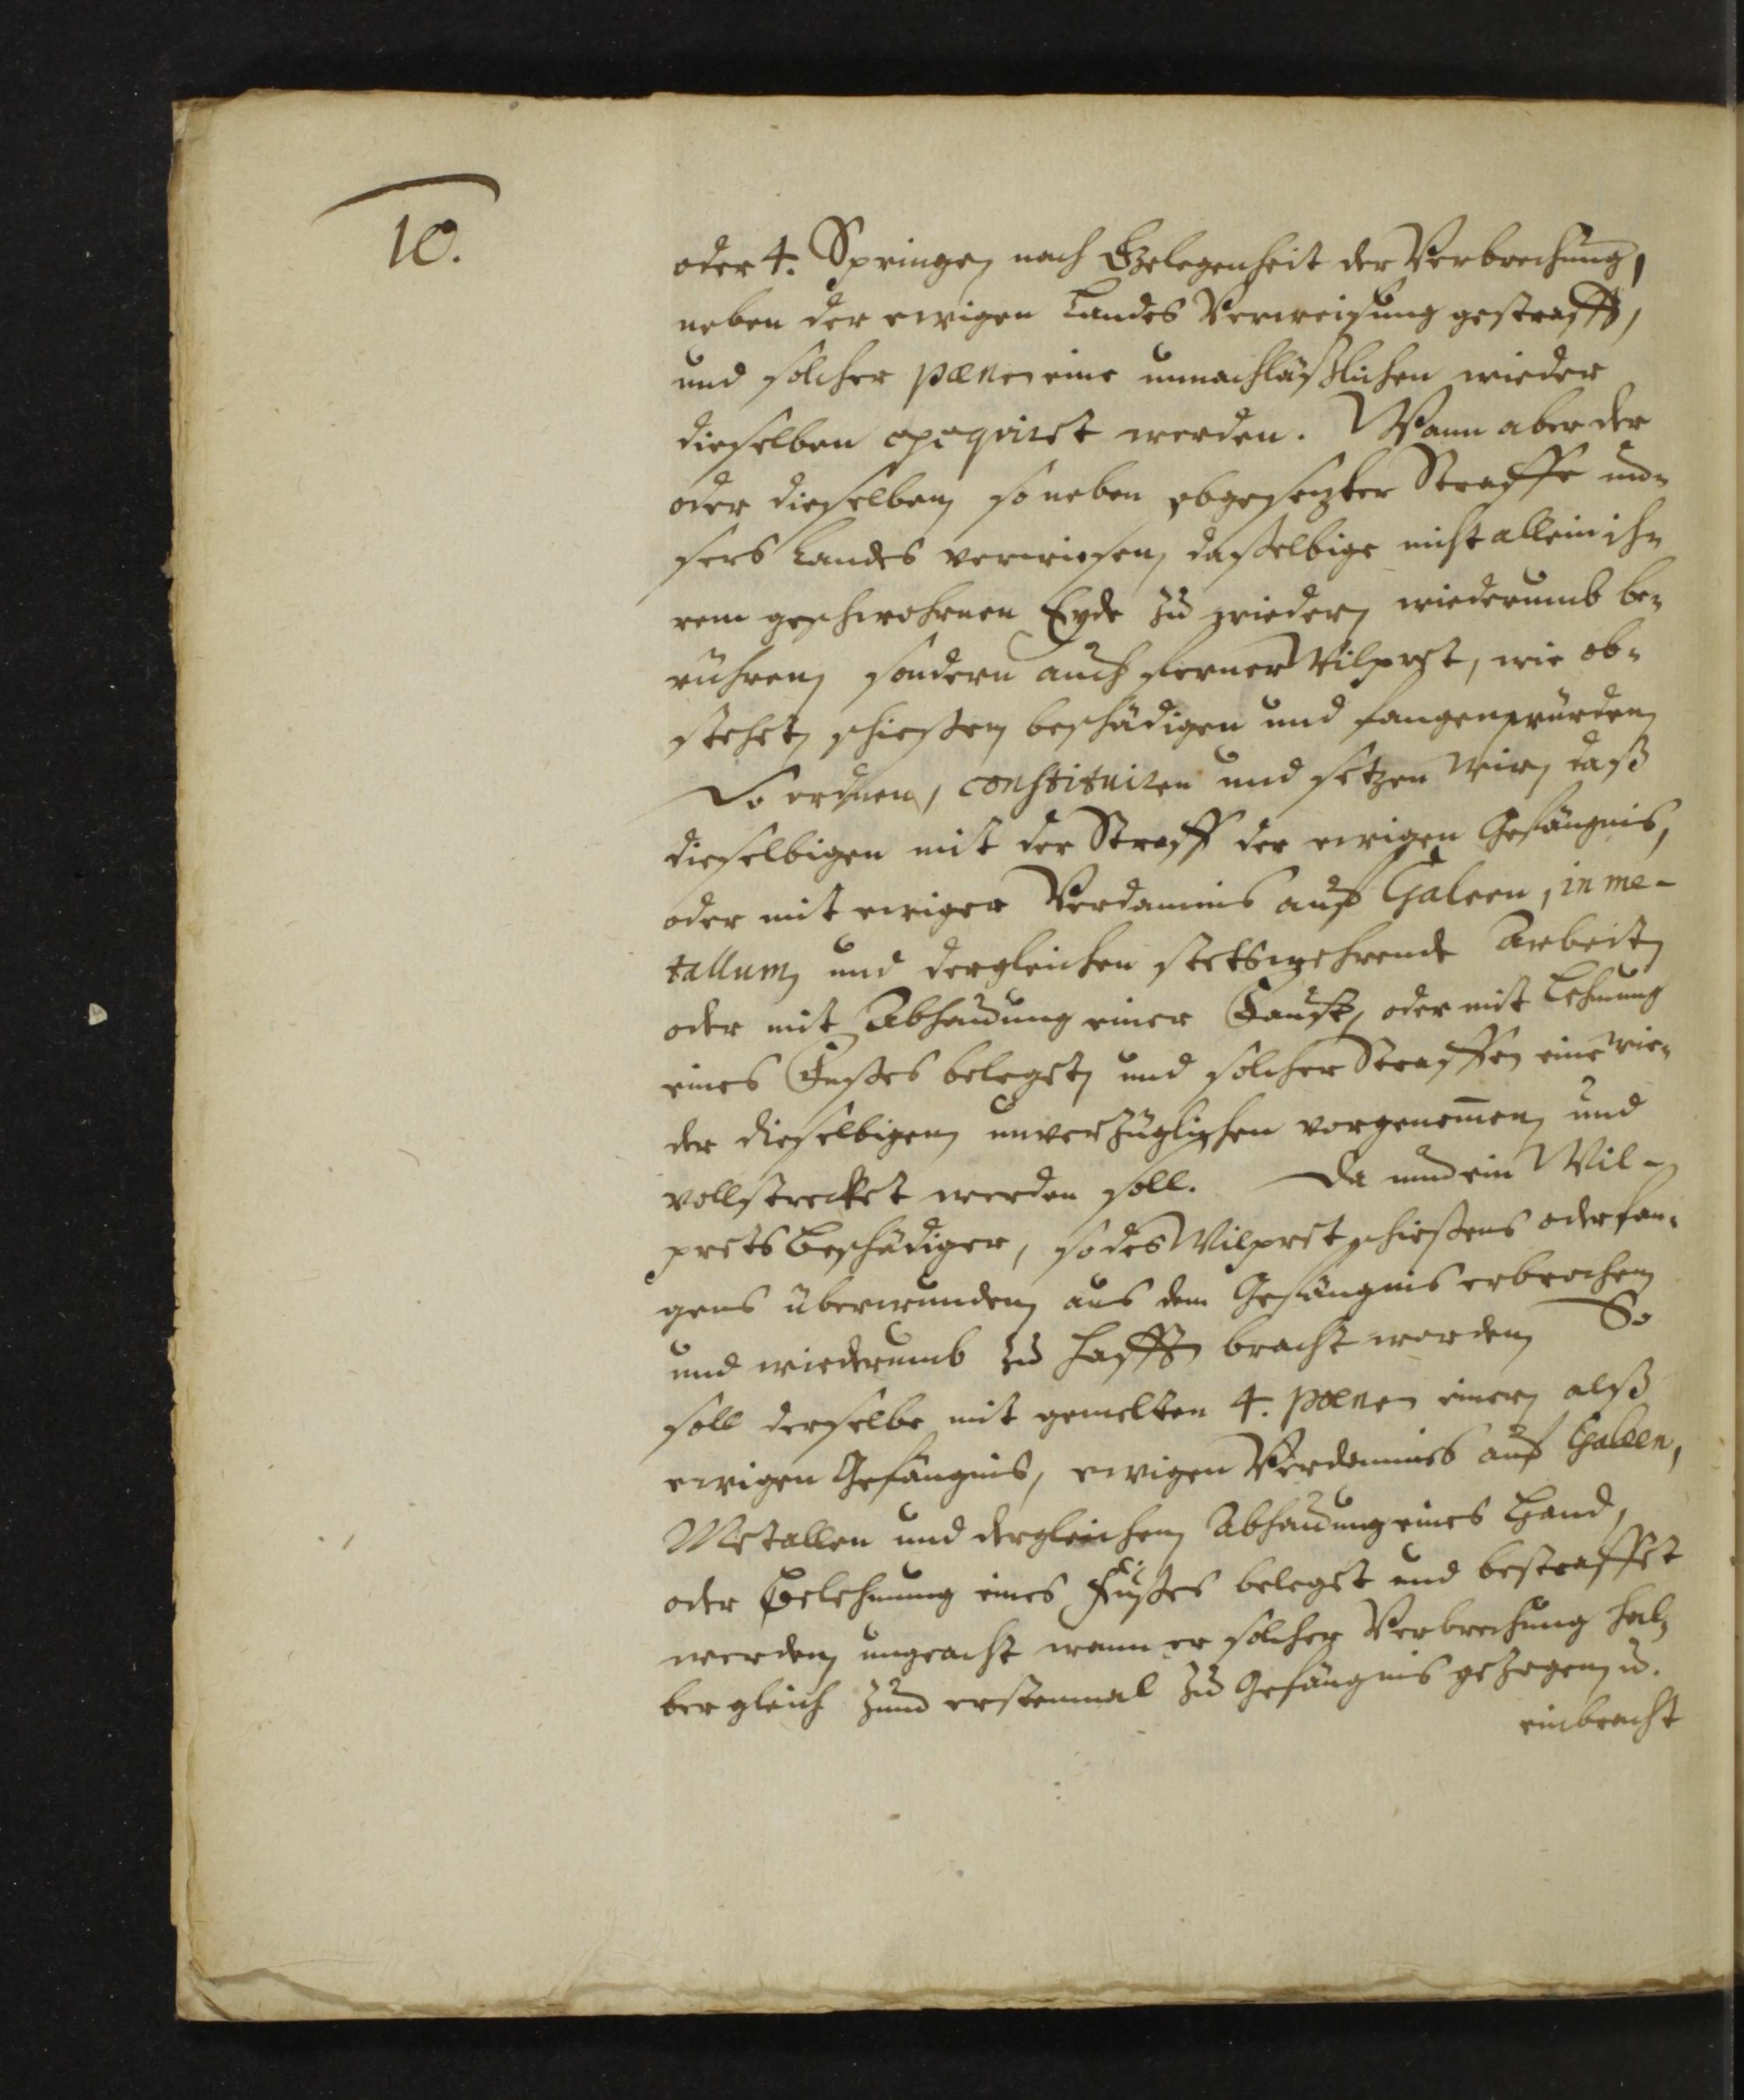 10.
oder 4. Springen nach Gelegenheit der Verbrechung,
neben der ewigen Landes Verweisung gestrafft,
und solcher pœnen eine unnachläßlichen wieder
dieselben exequiret werden. Wann aber der
oder dieselben so neben obgesetzter Straffe un¬
sers Landes verwiesen, dasselbige nicht allein ih¬
rem geschwohrnen Eyde zu wieder, wiederumb be¬
rühren, sondern auch ferner Wilpret, wie ob¬
stehet, schiessen, beschädigen und fangen würden,
So ordnen, constituiren und setzen Wir, daß
dieselbigen mit der Straff der ewigen Gefängnis,
oder mit ewiger Verdamnis auf Galeen, in me-
tallum, und dergleichen stetswehrende Arbeit,
oder mit Abhauung einer Faust, oder mit Lehmung
eines Fusses beleget, und solcher Straffen eine wie¬
der dieselbigen unverzüglichen vorgenom̅en, und
vollstrecket werden soll. Da nun ein Wil-
prets Beschädiger, so des Wilpret schiessens oder fan¬
gens überwunden, aus dem Gefängnis erbrochen,
und wiederumb zu hafften bracht worden, So
soll derselbe mit gemelten 4. pœnen einer, alß
ewigen Gefängnis, ewigen Verdamnis auf Galeen,
Metallen und dergleichen, Abhauung eines Hand,
oder Belehmung eines Fusses beleget und bestraffet
werden, ungeacht wann er solcher Verbrechung hal¬
ber gleich zum erstenmal zu Gefängnis gezogen, u.
einbracht